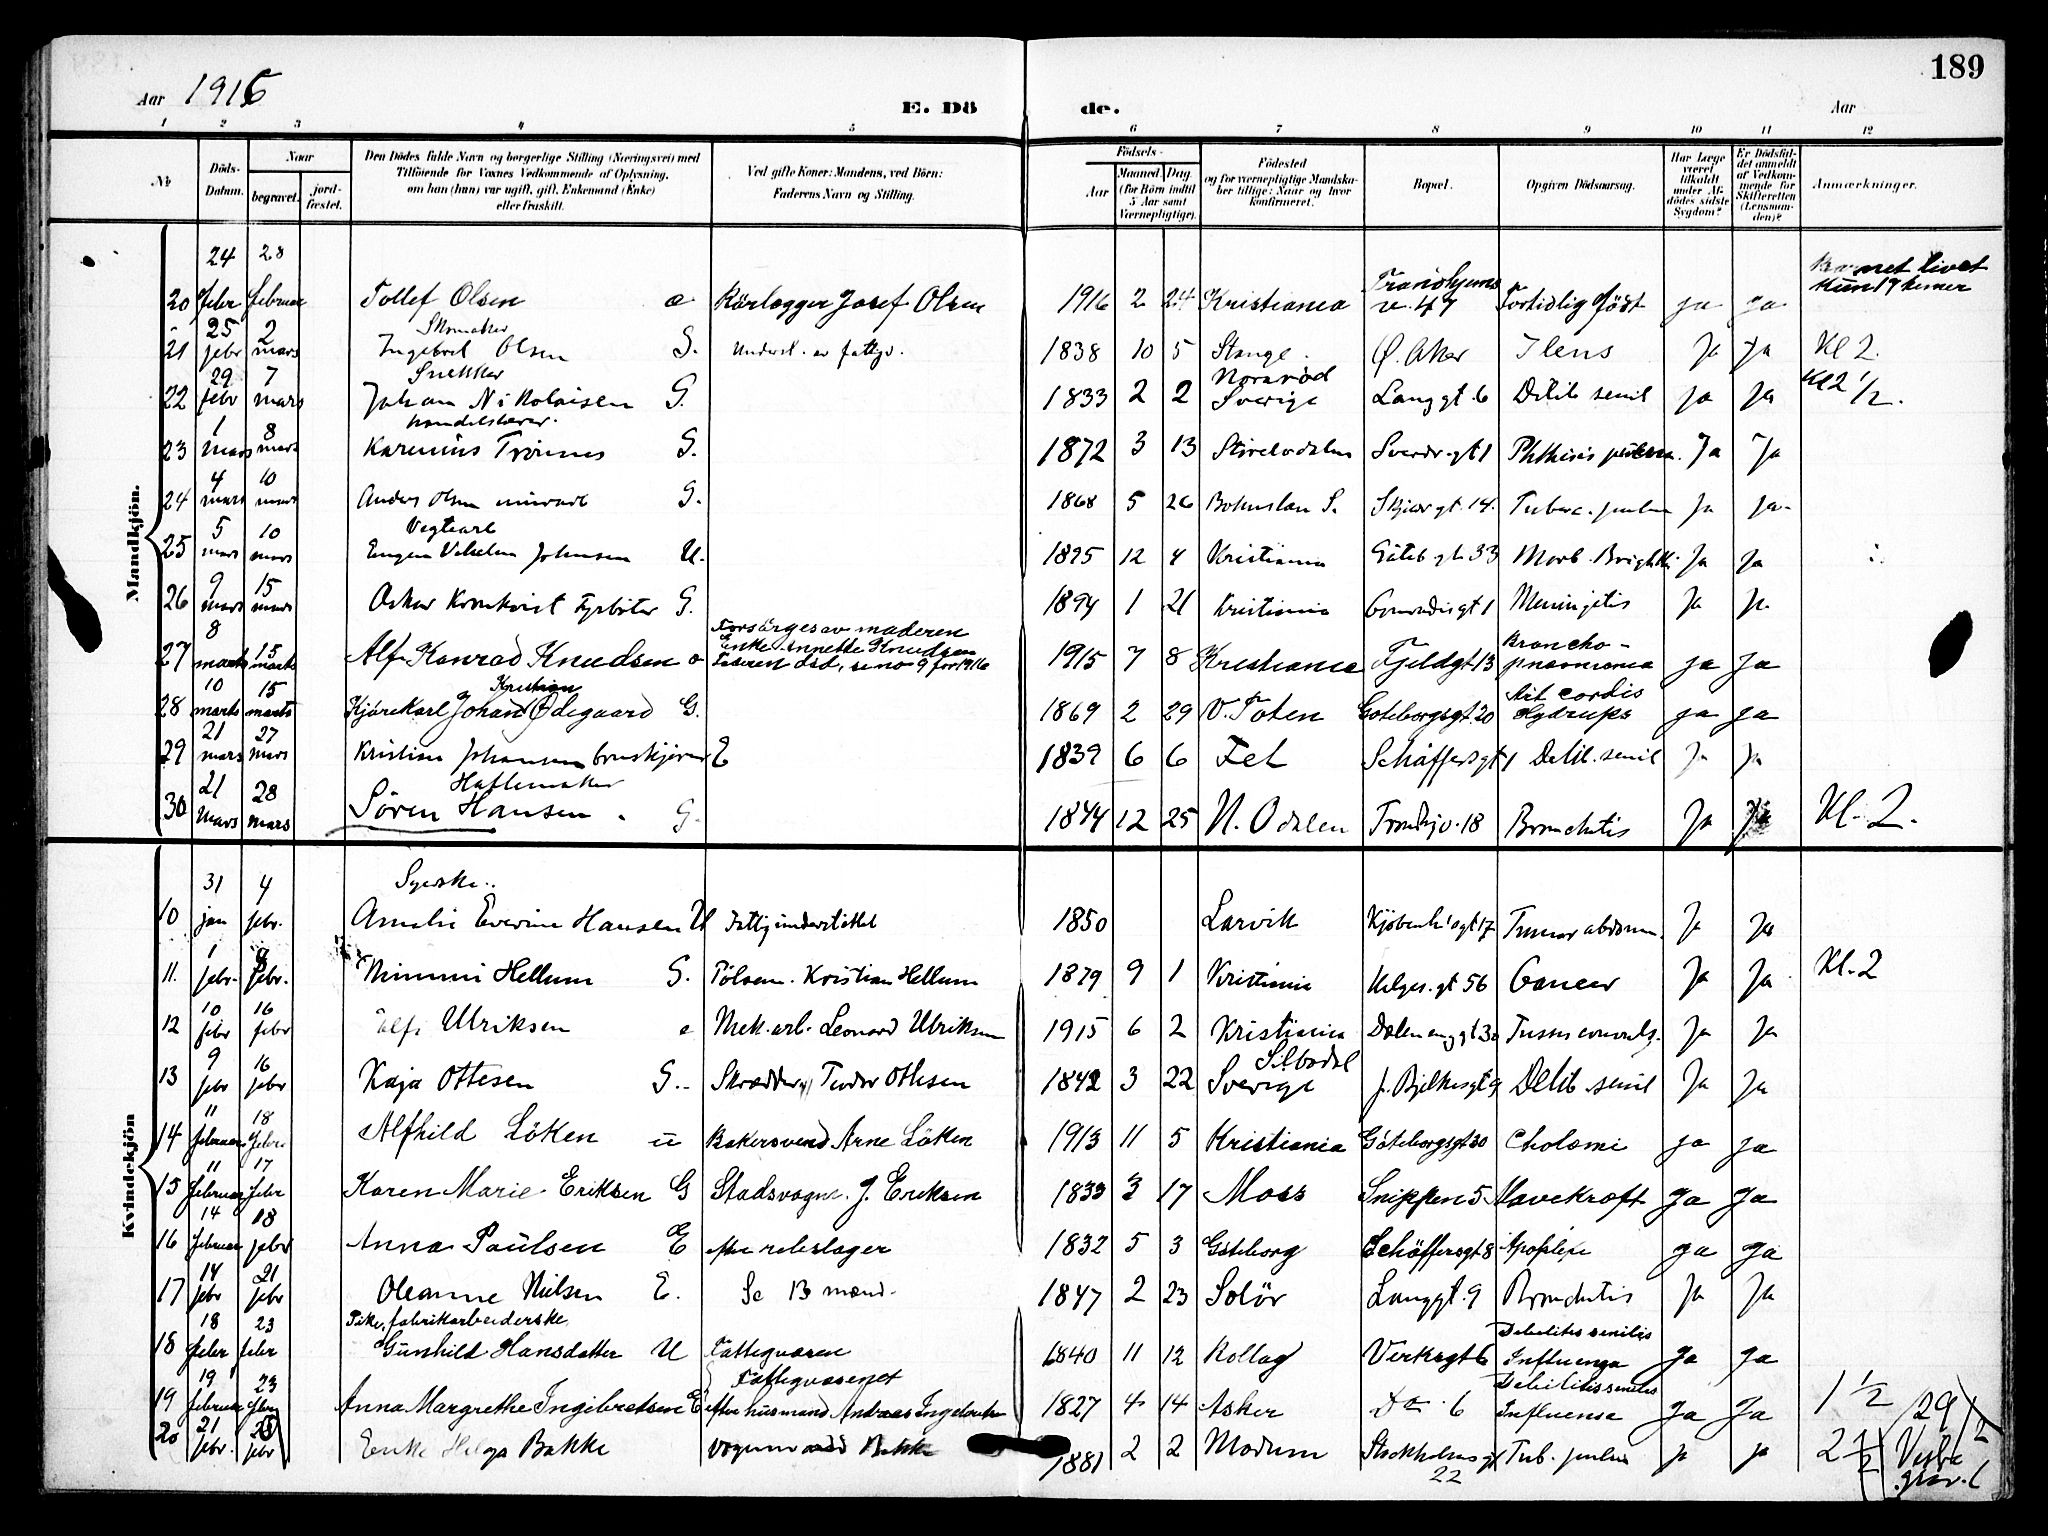 189
Aar 1916
E. Dö de.
Aar
1 2 3 4 5 6 7 8 9 10 11 12
No
Döds-Datum.
Naar
begravet.
jord-fæstet.
Den Dödes fulde Navn og borgerlige Stilling (Næringsvei) med
Tilföiende for Voxnes Vedkommende af Oplysning,
om han (hun) var ugift, gift, Enkemand (Enke)
eller fraskilt.
Ved gifte Koner: Mandens, ved Börn:
Faderens Navn og Stilling.
Födsels-
Aar
Maaned. Dag.
(for Börn indtil
5 Aar samt
Værnepligtige).
Födested
og for værnepligtige Mandska-
ber tillige: Naar og hvor
konfirmeret.
Bopæl.
Opgiven Dödsaarsag.
Har Læge
været
tilkaldt
under Af-
dödes sidste
Sygdom?
Er Dödsfal-
det anmeldt
af Vedkom-
mende for
Skifteretten
(Lensman-
den)?
Anmærkninger.
Mandkjön.
24 28
20 febr februar Tollef Olsen Rörlægger Josef Olsen 1916 2 24 Kristiania v. 47 Fortidlig födt ja ja
25 2 Skomaker
21 febr mars Ingebret Olsen G. Underst. av fattigv. 1838 10 5 Stange. Ø. Aker Ilens Ja Ja Kl 2.
29 7 Snekker
22 febr mars Johan Nikolaisen G. 1833 2 2 Sverige Langgt. 6 Debil. senil ja ja Kl 2 1/2.
1 8
23 mars mars Karenius Trønnes G. 1872 3 13 Sverdr. gt 1 Phthisis Ja Ja
4 10
24 mars mars Anders Olsen G. 1868 5 26 Bohuslän S. 14. Tuberc. pulm Ja Ja
5 10
25 mars mars Eugen Vilhelm Johnsen U. 1895 12 4 Kristiania Göteb. gt. 33 Morb. Brightii Ja Ja
9 15
26 mars mars Oskar Kronkvist Fyrböter G. 1894 1 21 Kristiania Meningitis Ja Ja
8 15 Forsörges av moderen
Enke Annette Knudsen
27 marts marts Alf Konrad Knudsen Faderen död, se no 9 for 1916 1915 7 8 Kristiania Fjeldgt. 13 Broncho-pneumonia ja Ja
10 15 Kristian
28 marts marts Kjörekarl Johan Ødegaard G. 1869 2 29 V. Toten Göteborgsgt. 20 cordis Hydrops ja ja
21 27
29 mars mars Kristian Johansen bruskjörer E 1839 6 6 Fet Schäffersgt 1 Debil. senil Ja Ja
21 28 Haftemaker
30 mars mars Sören Hansen G. 1844 12 25 N. Odalen Trondhjv. 18 Bronchitis Ja Ja Kl. 2.
Kvindekjön
31 4 Syerske..
10 jan febr. Amalie Everine Hansen U Fattigunderstöttet 1850 Larvik Kjöbenh'sgt 17 Tumor abdom. Ja Ja
1 8
11. febr. febr. Mimmi Hellum G. Pölsem. Kristian Hellum 1879 9 1 Kristiania Helges. gt 56 Cancer Ja Ja Kl. 2
10 16
12 febr febr Ulriksen Mek. arb. Leonard Ulriksen 1915 6 2 Kristiania Dælenenggt 30 Tussis convuls. Ja Ja
9 16
13 febr febr Kaja Ottesen G. Skrædder Tudor Ottesen 1842 3 22 Silbodal Sverige J. Bjelkesgt 9 Debil senil Ja Ja
11 18
14 februar febr. Alfhild Löken u Bakersvend Arne Löken 1913 11 5 Kristiania Göteborgsgt 30 Cholæmi ja ja
11 17
15 februar febr Karen Marie Eriksen G Stadsvogn. J. Eriksen 1833 3 17 Moss Snippen 5 Mavekræft Ja Ja
14 18
16 februar febr Anna Paulsen E efter rebslager 1832 5 3 Göteborg Schäffersgt 8 Apoplexi ja ja
14 21
17 febr febr Oleanne Nilsen E. Se 13 mænd. 1847 2 23 Solör Langgt. 9 Bronchitis Ja Ja
18 23 Pike, fabrikarbeiderske
18 febr febr Gunhild Hansdatter U Fattigvæsen 1840 11 12 Rollag Verksgt 6 Debilitas senilis Influenza Ja Ja
19 23 Fattigvæsenet
19 februar febr Anna Margrethe Ingebretsen E efter husmand Andreas Ingebretsen 1827 4 14 Asker Do 6 Debilitas senilis Influensa Ja Ja 1 1/2
20 21 febr. febr Enke Helga Bakke Bakke 1881 2 2 Modum Stockholmsgt 22 Tub. pulm Ja Ja 2 1/2 29/2 Vestre grav.